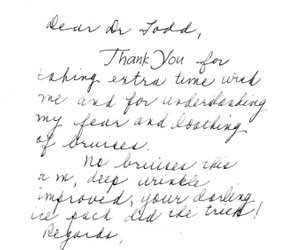 Dear Dr Todd,
Thank You for
taking extra time with
me and for understanding
my fear and loathing
of bruises.
No bruises this
a m, deep wrinkle
improved, your darling
ice pack did the trick!
Regards,